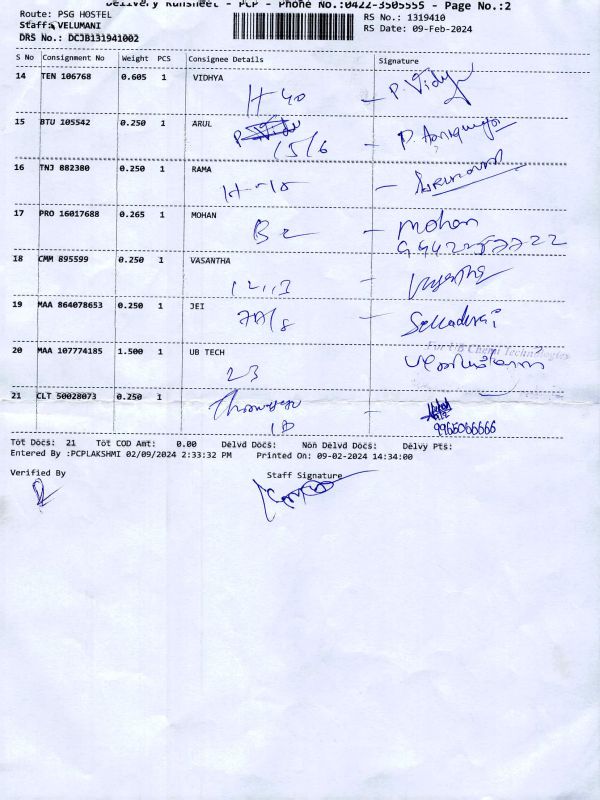 Delivery Runsheet - PCP - Phone No.:0422-3505555 - Page No.:2
Route: PSG HOSTEL
RS No.: 1319410
Staff: VELUMANI
RS Date: 09-Feb-2024
DRS No.: DCJB131941002
S No Consignment No Weight PCS Consignee Details Signature
14 TEN 106768 0.605 1 VIDHYA
H 40 - P. Vidy
15 BTU 105542 0.250 1 ARUL
15/6 -
16 TNJ 882380 0.250 1 RAMA
17 PRO 16017688 0.265 1 MOHAN
- mohan
18 CMM 895599 0.250 1 VASANTHA
19 MAA 864078653 0.250 1 JEI
20 MAA 107774185 1.500 1 UB TECH
For UB Chemi Technologies
23
21 CLT 50028073 0.250 1
9965066666
Tot Docs: 21 Tot COD Amt: 0.00 Delvd Docs: Non Delvd Docs: Delvy Pts:
Entered By :PCPLAKSHMI 02/09/2024 2:33:32 PM Printed On: 09-02-2024 14:34:00
Verified By Staff Signature